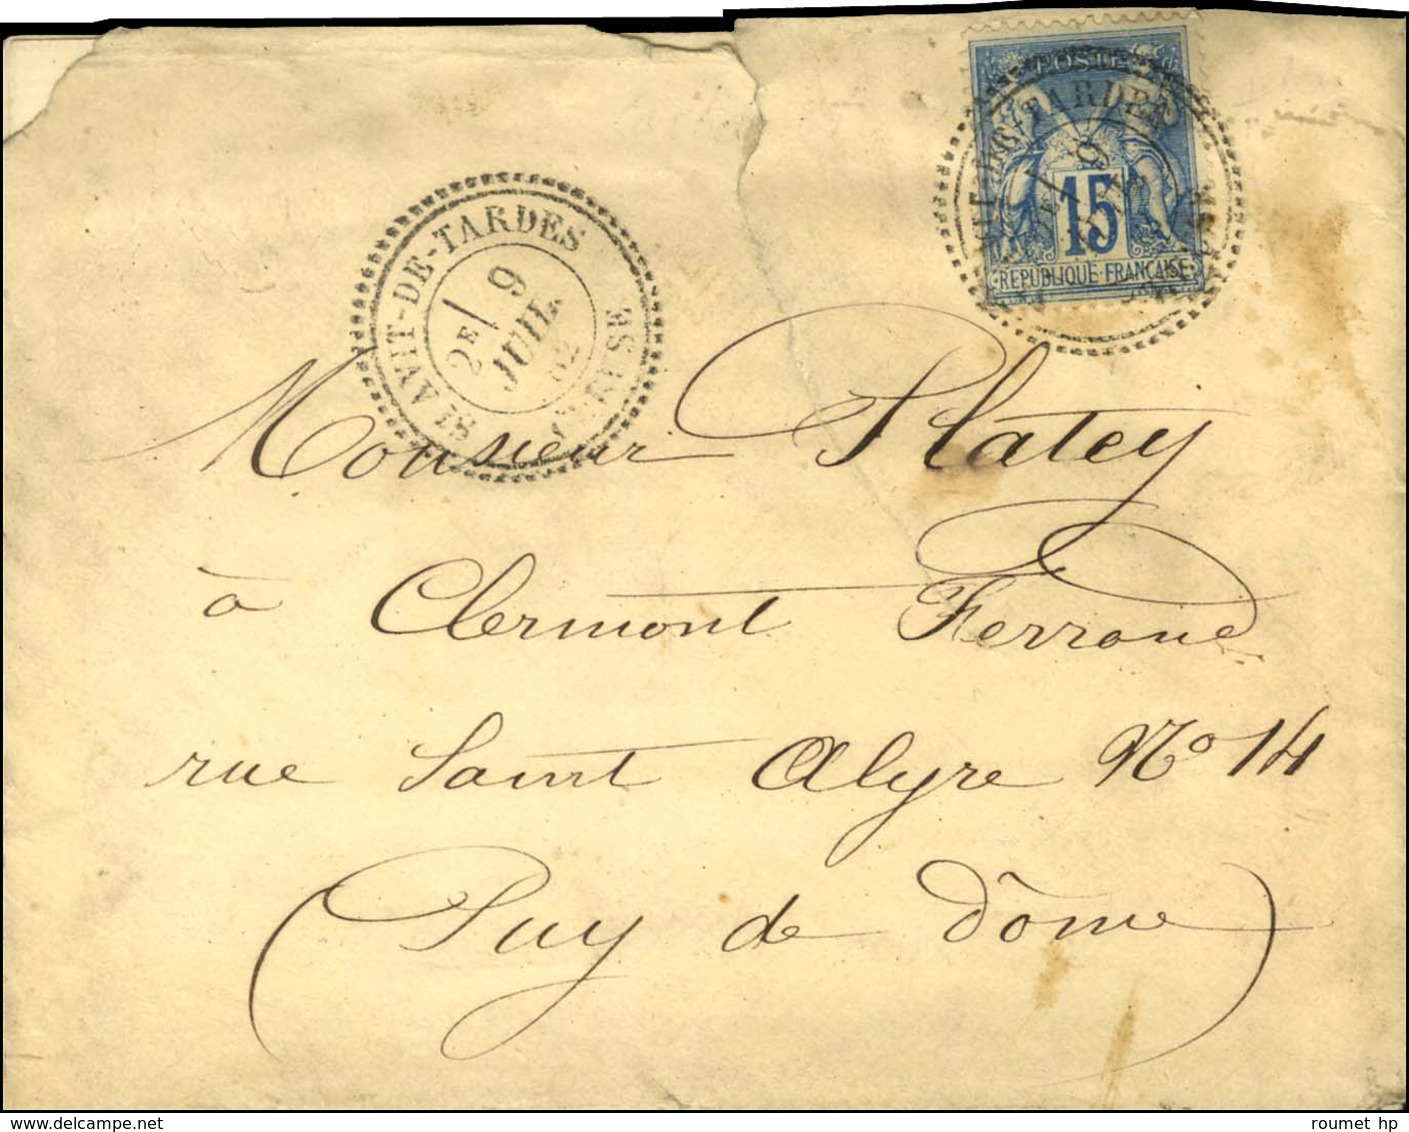 POSTE
15
REPUBLIQUE FRANÇAISE
ST AVIT-DE-TARDES
2E / 9
JUIL
CREUSE
Monsieur Platey
à Clermont Ferrand
rue Saint Alyre No 14
(Puy de Dôme)
delcampe.net
roumet hp